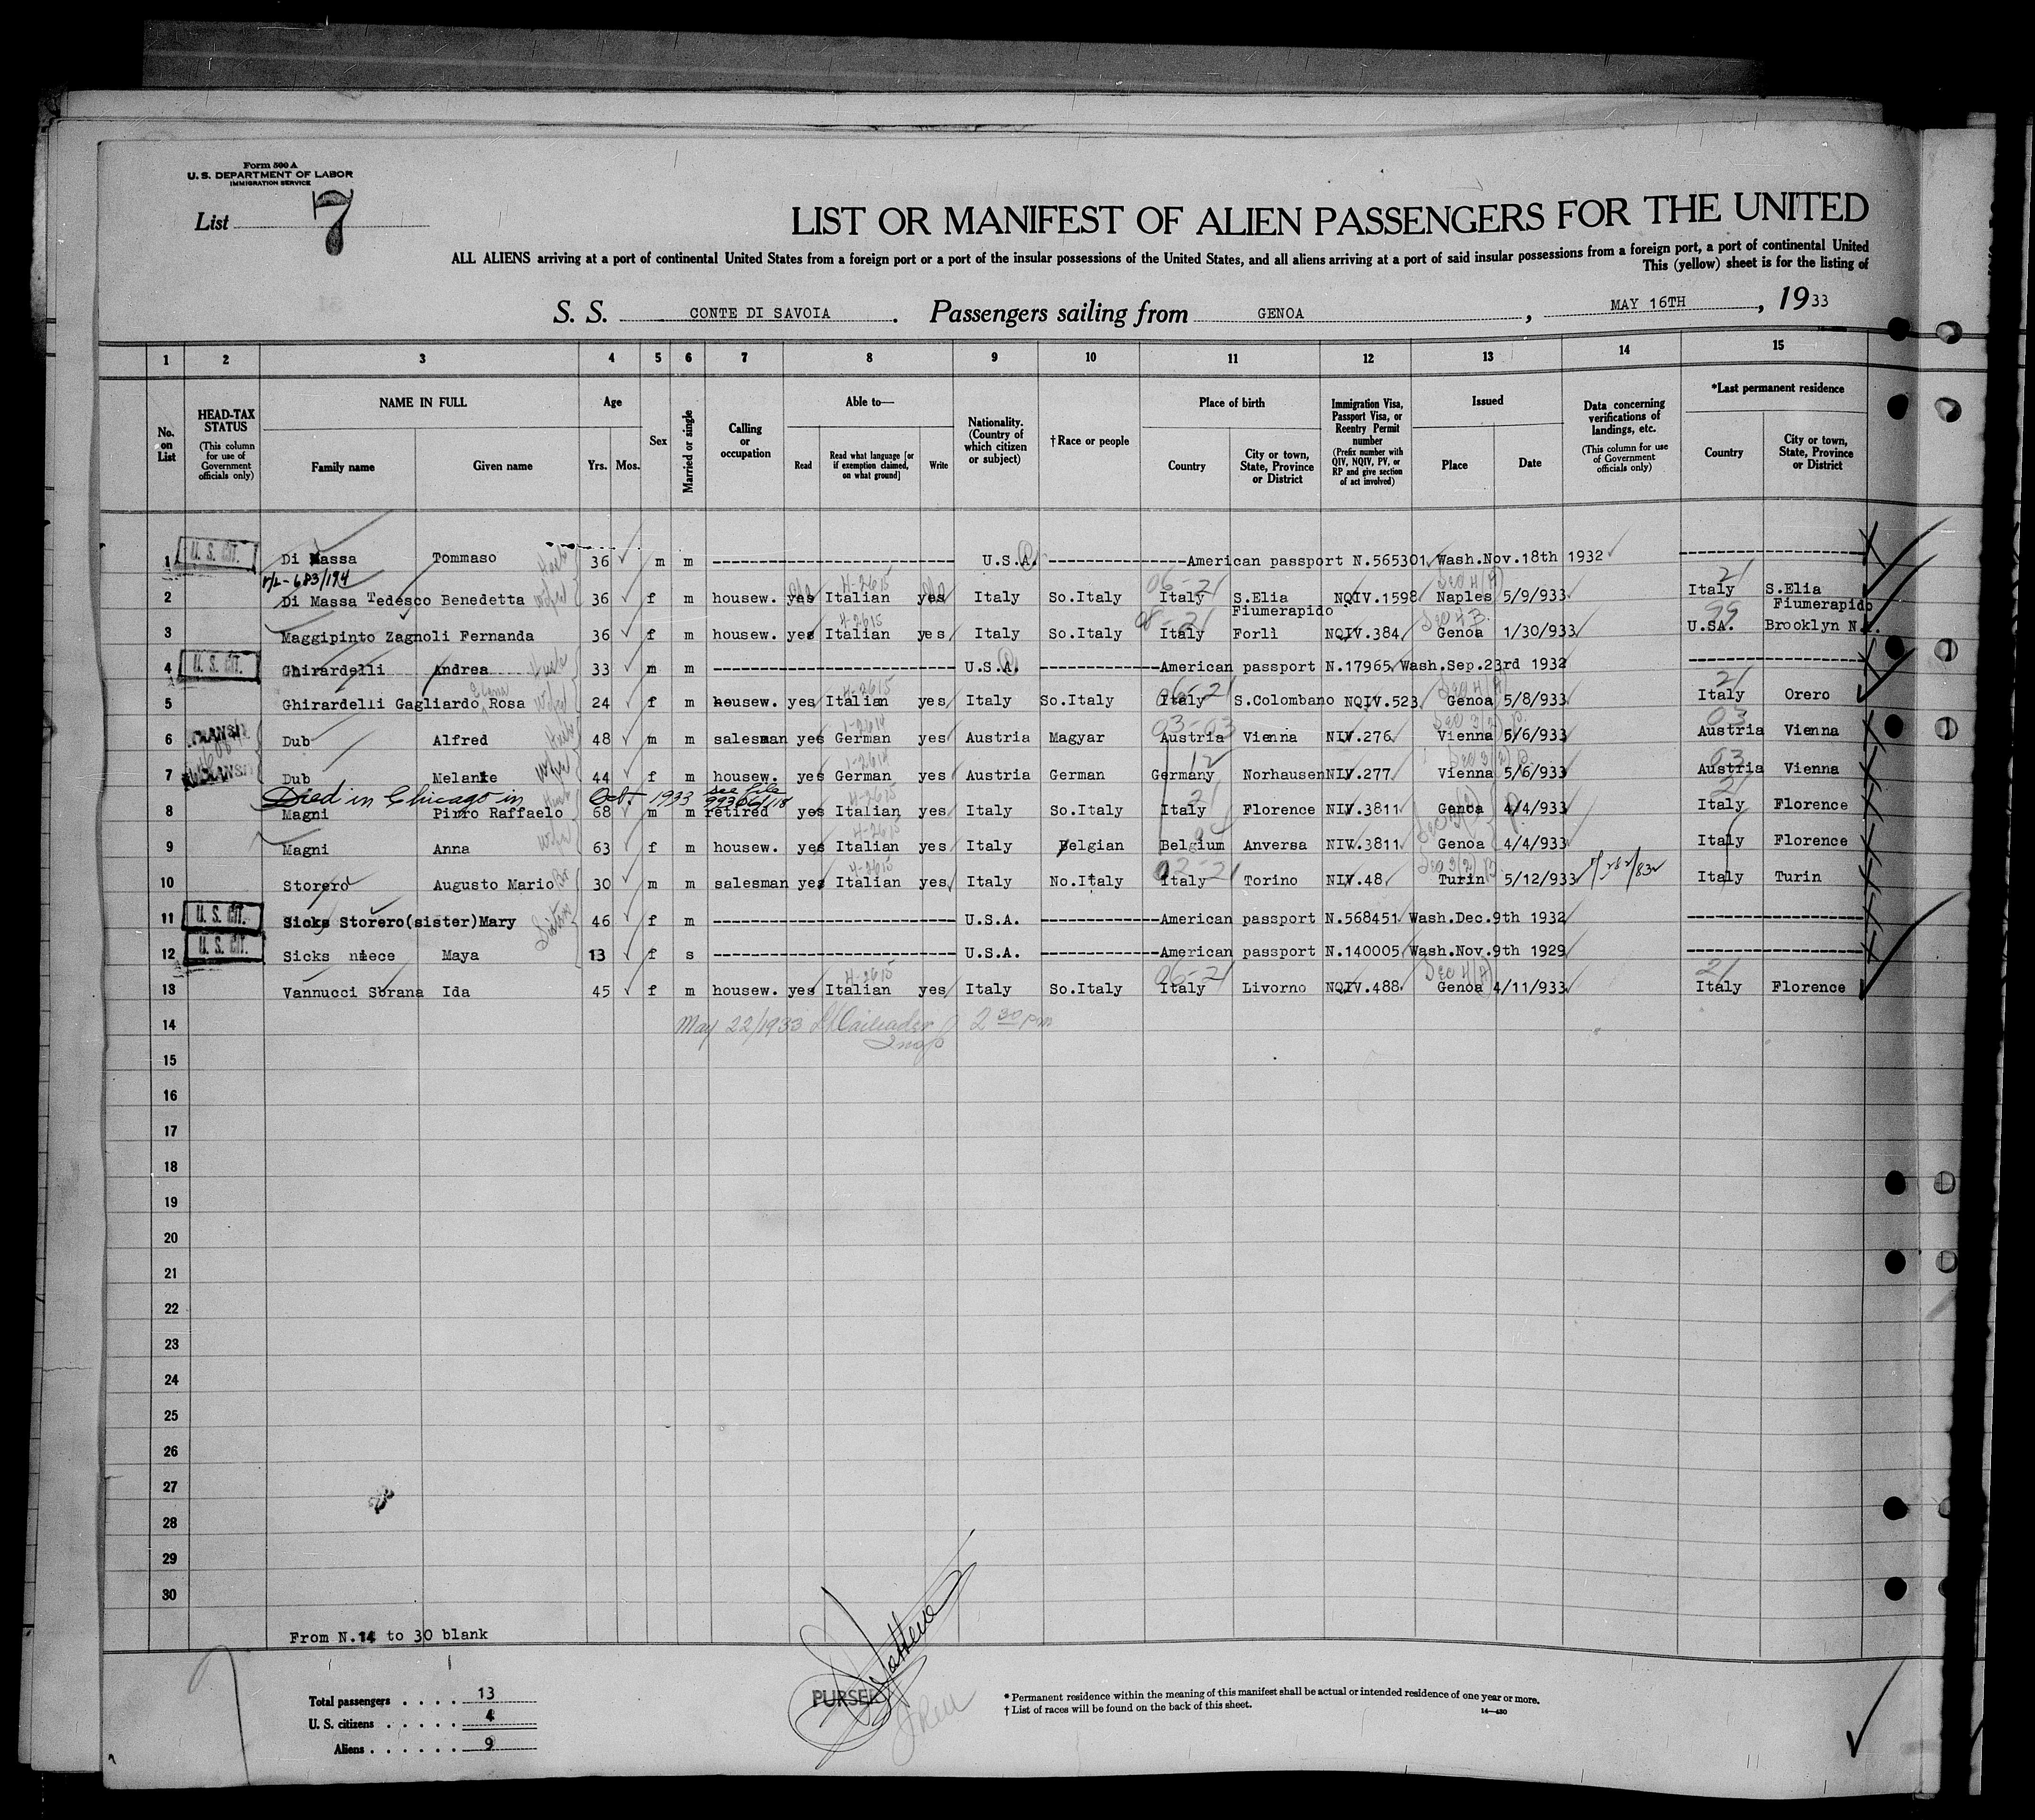 Form 500 A
U. S. DEPARTMENT OF LABOR
IMMIGRATION SERVICE
List 7
LIST OR MANIFEST OF ALIEN PASSENGERS FOR THE UNITED
ALL ALIENS arriving at a port of continental United States from a foreign port or a port of the insular possessions of the United States, and all aliens arriving at a port of said insular possessions from a foreign port, a port of continental United
This (yellow) sheet is for the listing of
S. S. CONTE DI SAVOIA. Passengers sailing from GENOA, MAY 16TH, 1933
1 2 3 4 5 6 7 8 9 10 11 12 13 14 15
No. on List
HEAD-TAX STATUS (This column for use of Government officials only)
NAME IN FULL Family name Given name
Age Yrs. Mos.
Sex
Married or single
Calling or occupation
Able to— Read Read what language [or if exemption claimed, on what ground] Write
Nationality. (Country of which citizen or subject)
†Race or people
Place of birth Country City or town, State, Province or District
Immigration Visa, Passport Visa, or Reentry Permit number (Prefix number with QIV, NQIV, PV, or RP and give section of act involved)
Issued Place Date
Data concerning verifications of landings, etc. (This column for use of Government officials only)
*Last permanent residence Country City or town, State, Province or District
1 U. S. CIT. Di Massa Tommaso Husb 36 m m U.S.A. American passport N.565301 Wash.Nov.18th 1932
4-2615 06-21 Sec 4(A) 21
2 Di Massa Tedesco Benedetta Wife 36 f m housew. yes Italian yes Italy So.Italy Italy S.Elia Fiumerapido NQIV.1598 Naples 5/9/933 Italy S.Elia Fiumerapido
4-2615 08-21 99
3 Maggipinto Zagnoli Fernanda 36 f m housew. yes Italian yes Italy So.Italy Italy Forlì NQIV.384 Genoa 1/30/933 U.SA. Brooklyn N.Y.
4 U. S. CIT. Ghirardelli Andrea Husb 33 m m U.S.A. American passport N.17965 Wash.Sep.23rd 1932
4-2615 06-21 Sec 4(A) 21
5 Ghirardelli Gagliardo Rosa Wife 24 f m housew. yes Italian yes Italy So.Italy Italy S.Colombano NQIV.523 Genoa 5/8/933 Italy Orero
1-2614 03-03 Sec 3(2) 03
6 TRANSIT Dub Alfred Husb 48 m m salesman yes German yes Austria Magyar Austria Vienna NIV.276 Vienna 5/6/933 Austria Vienna
1-2614 12 Sec 3(2) 03
7 TRANSIT Dub Melanie Wife 44 f m housew. yes German yes Austria German Germany Norhausen NIV.277 Vienna 5/6/933 Austria Vienna
Died in Chicago in Oct. 1933 see file 99306/118 4-2615 21 21
8 Magni Pirro Raffaelo 68 m m retired yes Italian yes Italy So.Italy Italy Florence NIV.3811 Genoa 4/4/933 Italy Florence
4-2615
9 Magni Anna Wife 63 f m housew. yes Italian yes Italy Belgian Belgium Anversa NIV.3811 Genoa 4/4/933 Italy Florence
4-2615 02-21 Sec 3(2)
10 Storero Augusto Mario 30 m m salesman yes Italian yes Italy No.Italy Italy Torino NIV.48 Turin 5/12/933 Italy Turin
11 U. S. CIT. Sicks Storero(sister)Mary Sister 46 f m U.S.A. American passport N.568451 Wash.Dec.9th 1932
12 U. S. CIT. Sicks niece Maya 13 f s U.S.A. American passport N.140005 Wash.Nov.9th 1929
4-2615 06-21 Sec 4(A) 21
13 Vannucci Sbrana Ida 45 f m housew. yes Italian yes Italy So.Italy Italy Livorno NQIV.488 Genoa 4/11/933 Italy Florence
14 May 22/1933 2 30 pm
15
16
17
18
19
20
21
22
23
24
25
26
27
28
29
30
From N.14 to 30 blank
Total passengers . . . . 13
U. S. citizens . . . . . 4
Aliens . . . . . . 9
PURSER
* Permanent residence within the meaning of this manifest shall be actual or intended residence of one year or more.
† List of races will be found on the back of this sheet.
14—430